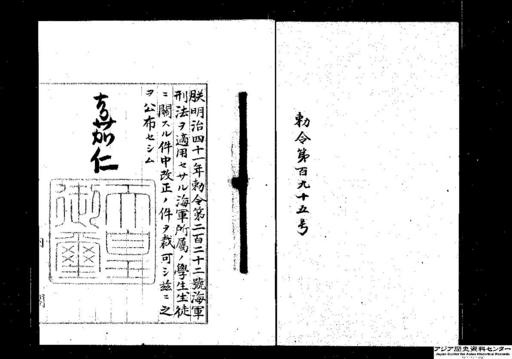 勅令第百九十五号
朕明治四十一年勅令第二百二十二號海軍
刑法ヲ適用セサル海軍所屬ノ學生生徒
ニ關スル件中改正ノ件ヲ裁可シ茲ニ之
ヲ公布セシム
嘉仁
天皇
御璽
アジア歴史資料センター
Japan Center for Asian Historical Records